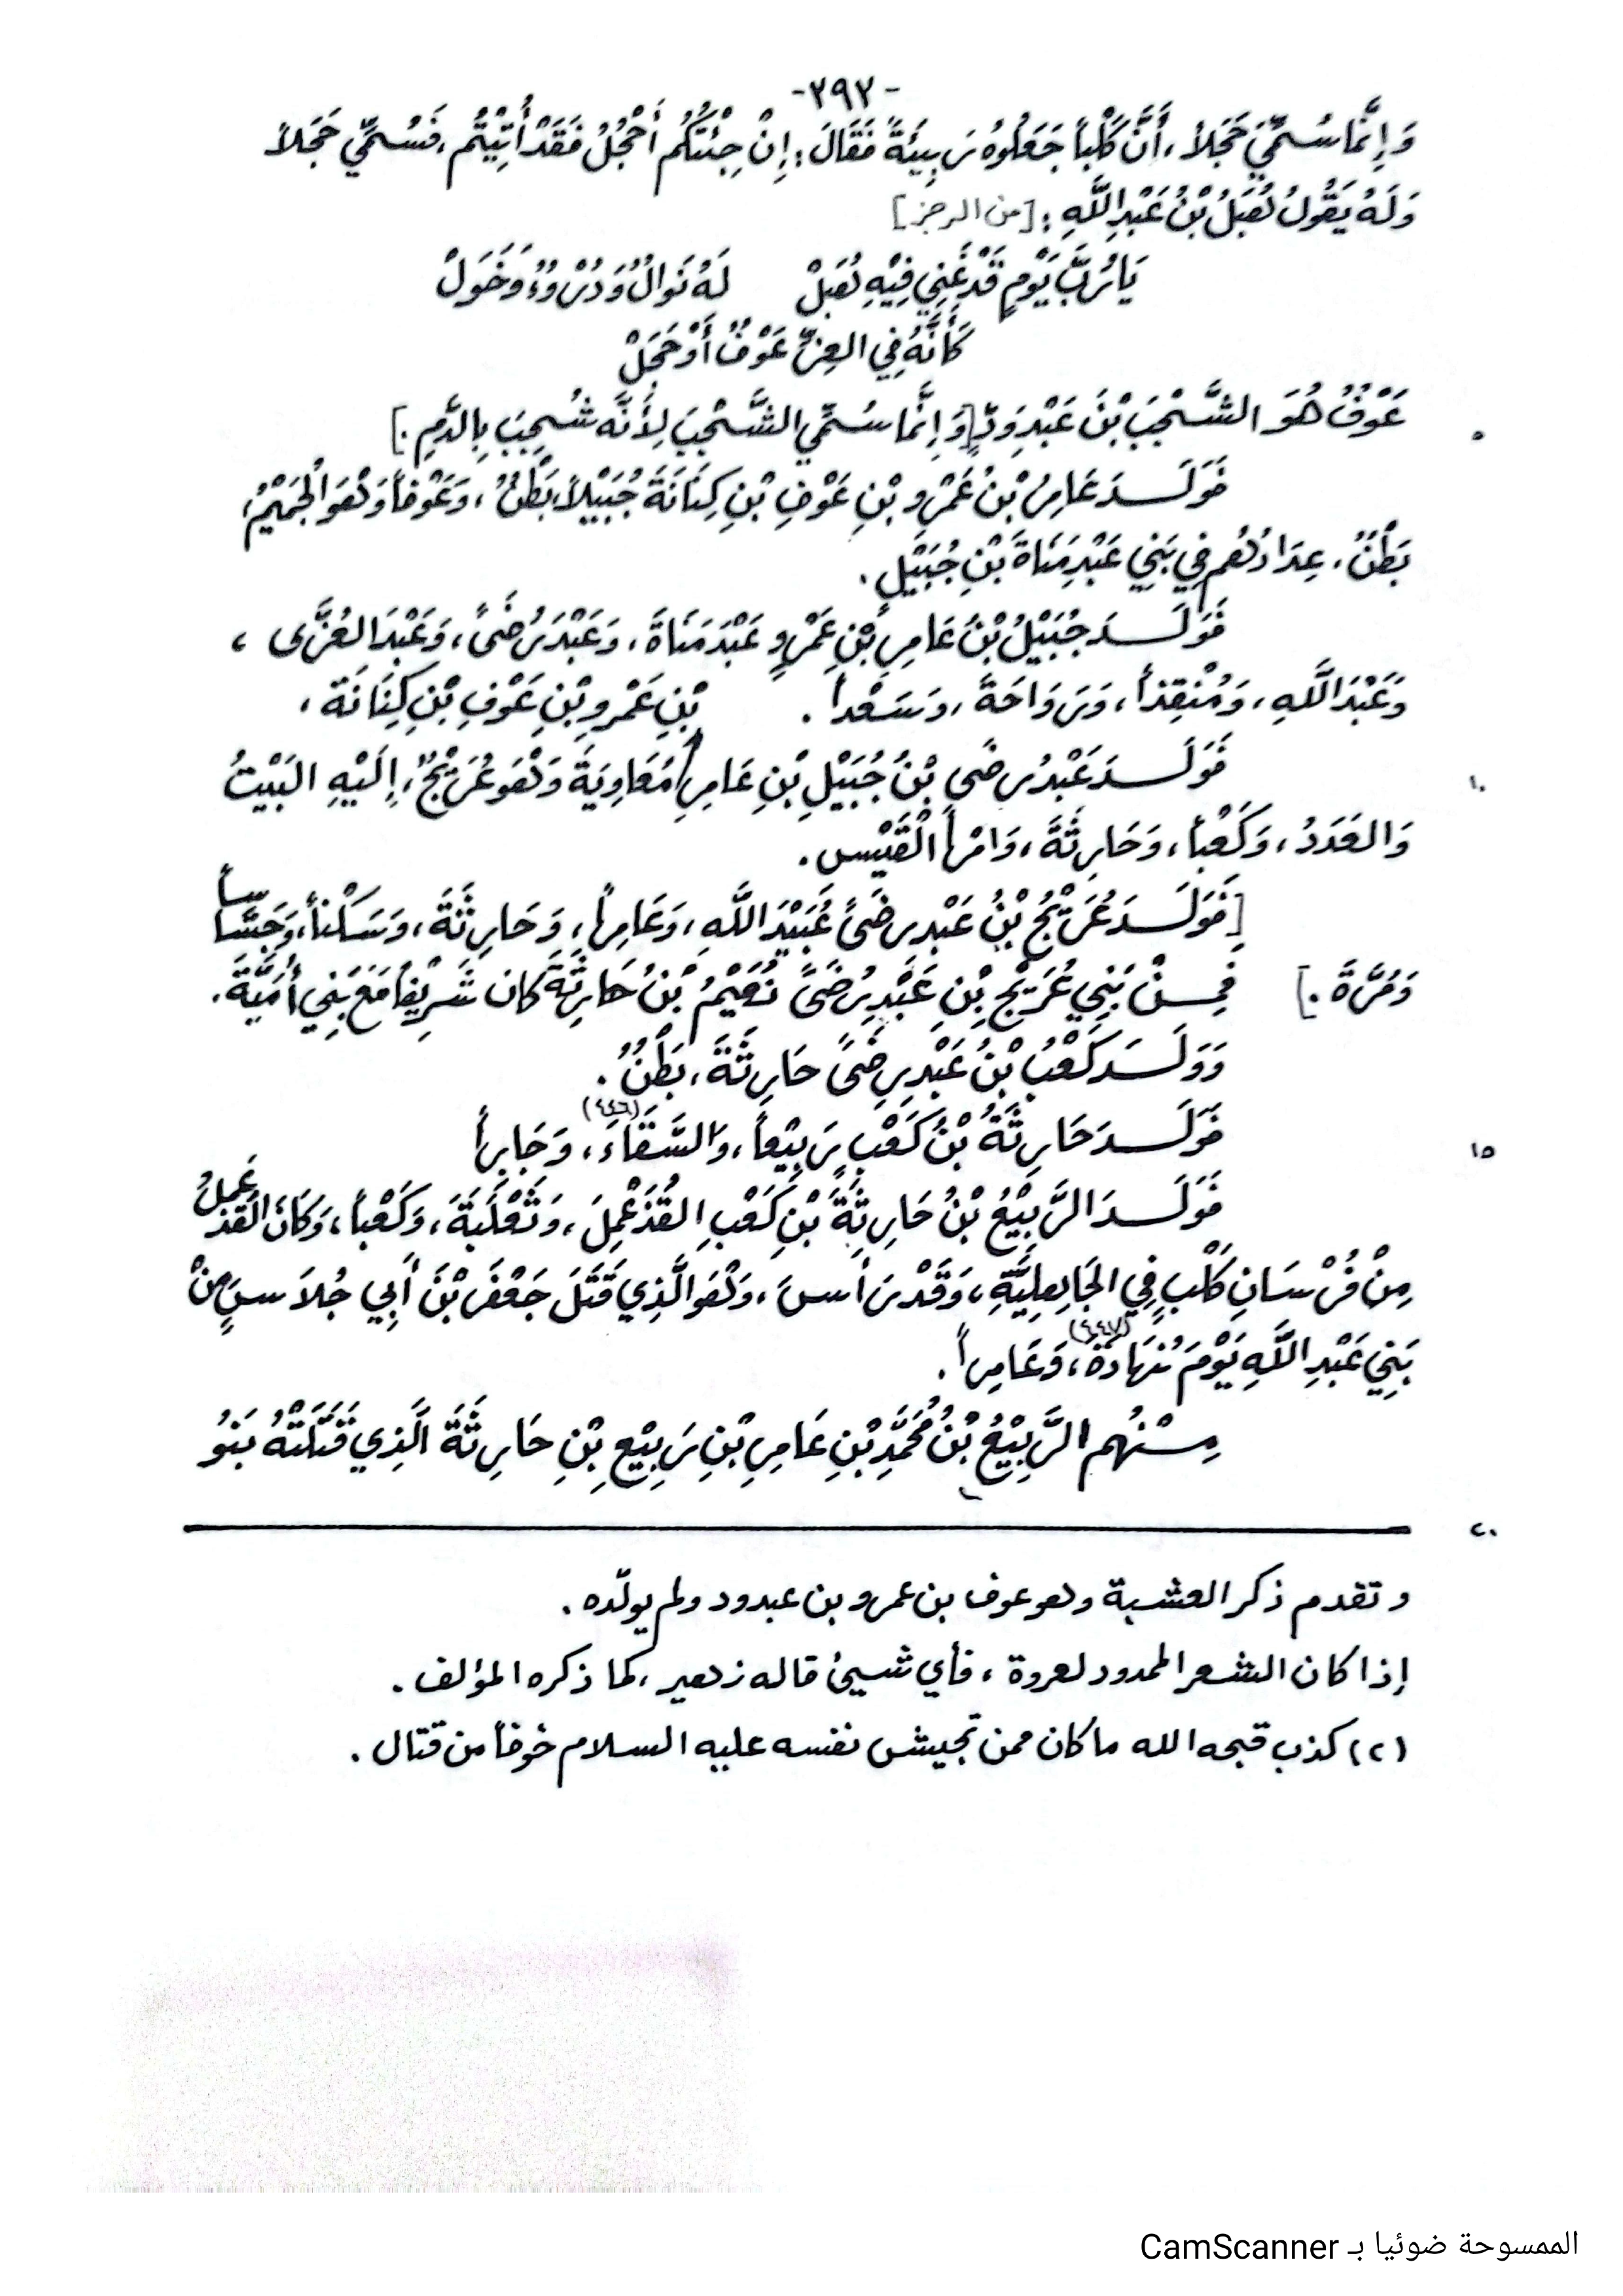 -٣٩٣-
وَإِنَّمَا سُمِّيَ حَجَلاً، أَنَّ كَلْباً جَعَلُوهُ رَبِيئَةً فَقَالَ: إِنْ جِئْتُكُم أَحْجُلُ فَقَدْ أُتِيْتُم، فَسُمِّي حَجَلاً
وَلَهُ يَقُولُ هُبَلُ بْنُ عَبْدِ اللَّهِ: [من الرجز]
يَا رُبَّ يَوْمٍ قَدْ غَنِي فِيْهِ هُبَلْ لَهُ نَوَالٌ وَدُرُوءٌ وَخَوَلْ
كَأَنَّهُ فِي العِزِّ عَوْفٌ أَوْ حَجَلْ
عَوْفٌ هُوَ الشَّجْبَ بْنَ عَبْدِ وَدٍّ [وَإِنَّمَا سُمِّي الشَّجْبَ لِأَنَّه شُجِبَ بِالدَّمِ.]
٥
فَوَلَدَ عَامِرُ بْنُ عَمْرِو بْنِ عَوْفِ بْنِ كِنَانَةَ جُبَيْلاً، بَطْنٌ، وَعَوْفاً وَهُوَ الْجَمِيْمُ،
بَطْنٌ، عِدَادُهُم فِي بَنِي عَبْدِ مَنَاةَ بْنِ جُبَيْلٍ.
فَوَلَدَ جُبَيْلُ بْنُ عَامِرِ بْنِ عَمْرٍو عَبْدَ مَنَاةَ، وَعَبْدَ رُضَىً، وَعَبْدَ العُزَّى،
وَعَبْدَ اللَّهِ، وَمُنْقِذاً، وَرَوَاحَةَ، وَسَعْداً. بْنِ عَمْرِو بْنِ عَوْفِ بْنِ كِنَانَة،
فَوَلَدَ عَبْدُ رُضَى بْنُ جُبَيْلِ بْنِ عَامِرِ مُعَاوِيَةَ وَهُوَ عُرَيْجٌ، إِلَيْهِ البَيْتُ
١٠
وَالعَدَدُ، وَكَعْباً، وَحَارِثَةَ، وَامْرَأَ الْقَيْس.
[فَوَلَدَ عُرَيْجُ بْنُ عَبْدِ رِضَىً عُبَيْدَ اللَّهِ، وَعَامِراً، وَحَارِثَةَ، وَسَكْناً، وَجَسَّاساً
وَمُرَّةَ.] فَمِنْ بَنِي عُرَيْجِ بْنِ عَبْدِ رُضَىً نُعَيْمُ بْنُ حَارِثَةَ كان شَرِيْفاً مَعَ بَنِي أُمَيَّةَ.
وَوَلَدَ كَعْبُ بْنُ عَبْدِ رِضَىً حَارِثَةَ، بَطْنٌ.
فَوَلَدَ حَارِثَةُ بْنُ كَعْبٍ رَبِيْعاً، وَالسَّقَّاءَ(٤٤٦)، وَجَابِراً
١٥
فَوَلَدَ الرَّبِيْعُ بْنُ حَارِثَةَ بْنِ كَعْبِ القُذَعْمِلَ، وَثَعْلَبَةَ، وَكَعْباً، وَكَانَ القُذَعْمِلُ
مِنْ فُرْسَانِ كَلْبٍ فِي الجَاهِلِيَّةِ، وَقَدْ رَأَسَ، وَهُوَ الَّذِي قَتَلَ جَعْفَرَ بْنَ أَبِي جُلاَسٍ مِنْ
بَنِي عَبْدِ اللَّهِ يَوْمَ نُهَادَةَ(٤٤٧)، وَعَامِراً.
مِنْهُم الرَّبِيْعُ بْنُ مُحَمَّدِ بْنِ عَامِرِ بْنِ رَبِيْعِ بْنِ حَارِثَةَ الَّذِي قَتَلَتْهُ بَنُو
٢٠
وتقدم ذكر العشبة وهو عوف بن عمرو بن عبدود ولم يولّده.
إذا كان الشعر الممدود لعروة، فأي شيئ قاله زهير، كما ذكره المؤلف.
(٢) كذب قبحه الله ما كان ممن تجيش نفسه عليه السلام خوفاً من قتال.
الممسوحة ضوئيا بـ CamScanner